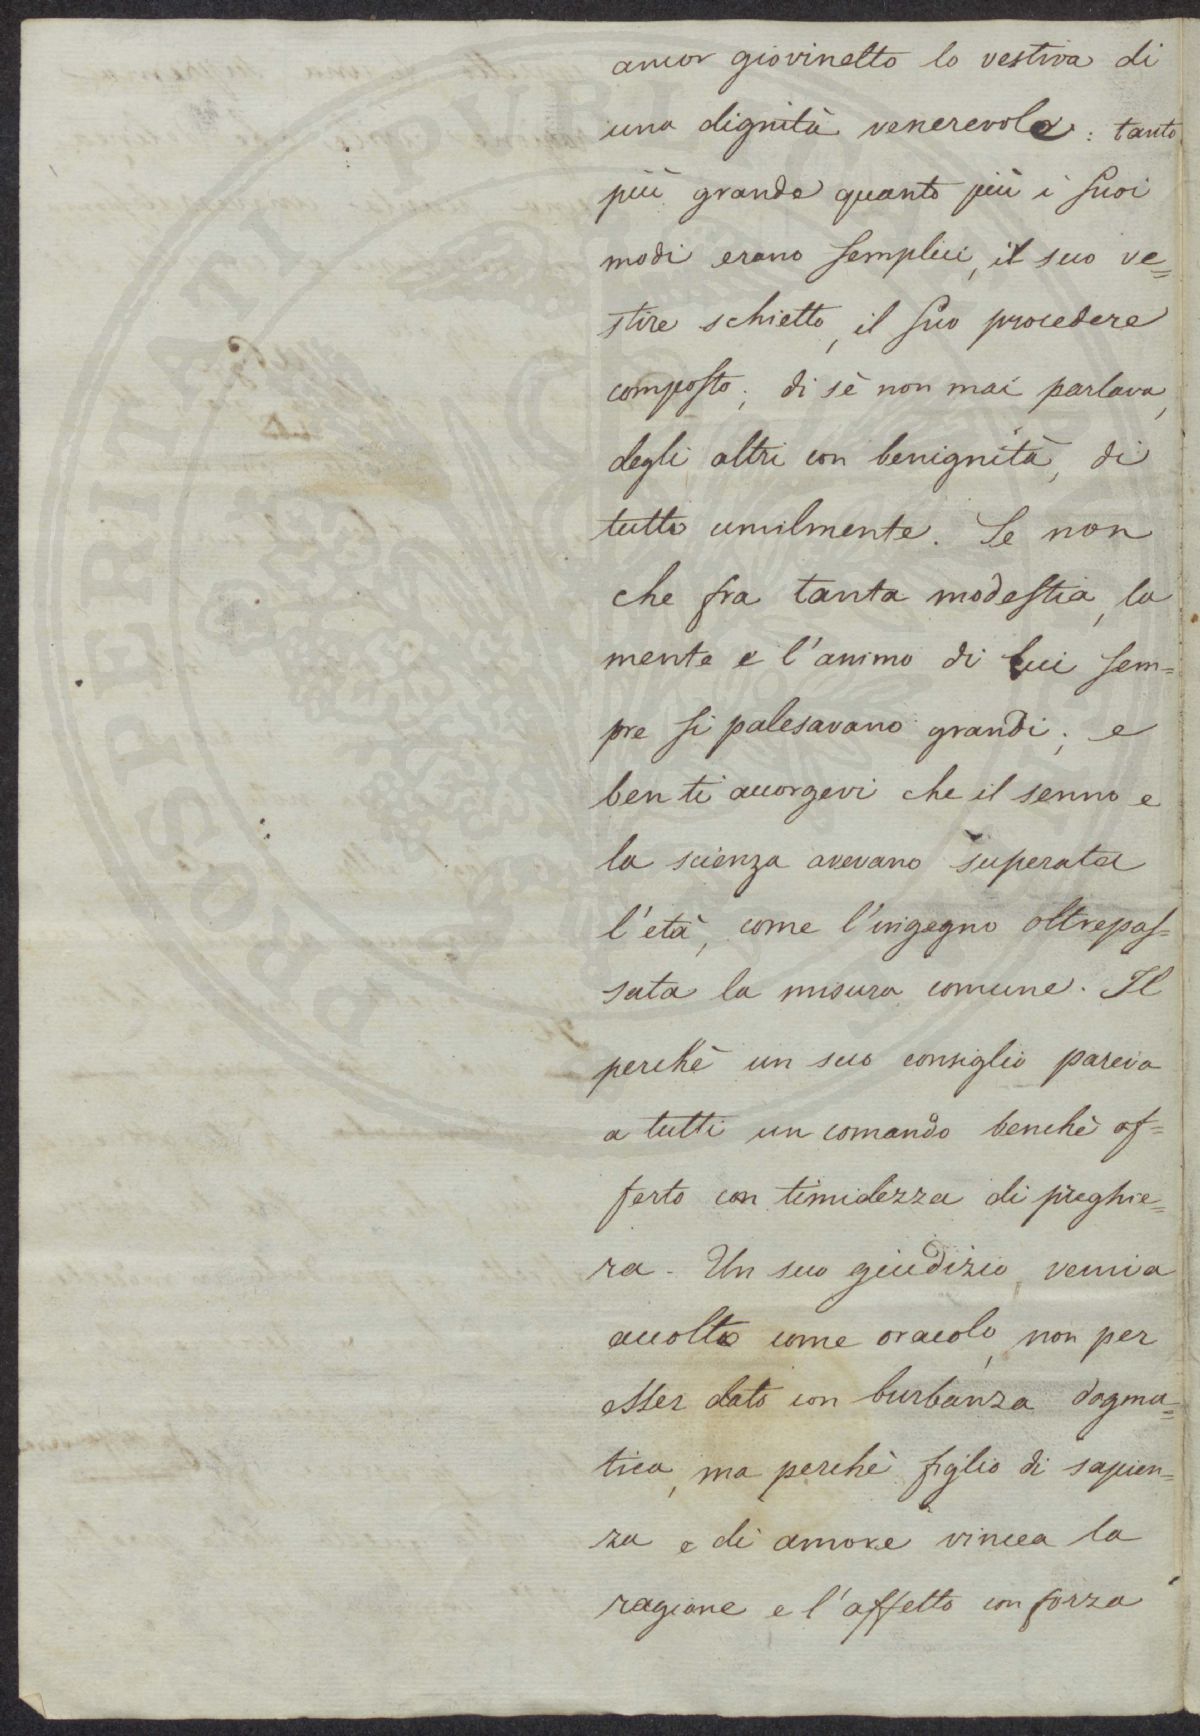 ancor giovinetto lo vestiva di
una dignità venerevole: tanto
più grande quanto più i suoi
modi erano semplici, il suo ve=
stire schietto, il suo procedere
composto; di sè non mai parlava,
degli altri con benignità, di
tutto umilmente. Se non
che fra tanta modestia, la
mente e l'animo di lui sem=
pre si palesavano grandi; e
ben ti accorgevi che il senno e
la scienza avevano superata
l'età, come l'ingegno oltrepas=
sata la misura comune. Il
perchè un suo consiglio pareva
a tutti un comando benchè of=
ferto con timidezza di preghie=
ra. Un suo giudizio venia
accolto come oracolo, non per
esser dato con burbanza dogma=
tica, ma perchè figlio di sapien=
za e di amore vincea la
ragione e l'affetto con forza
PROSPERITATI PUBLICAE